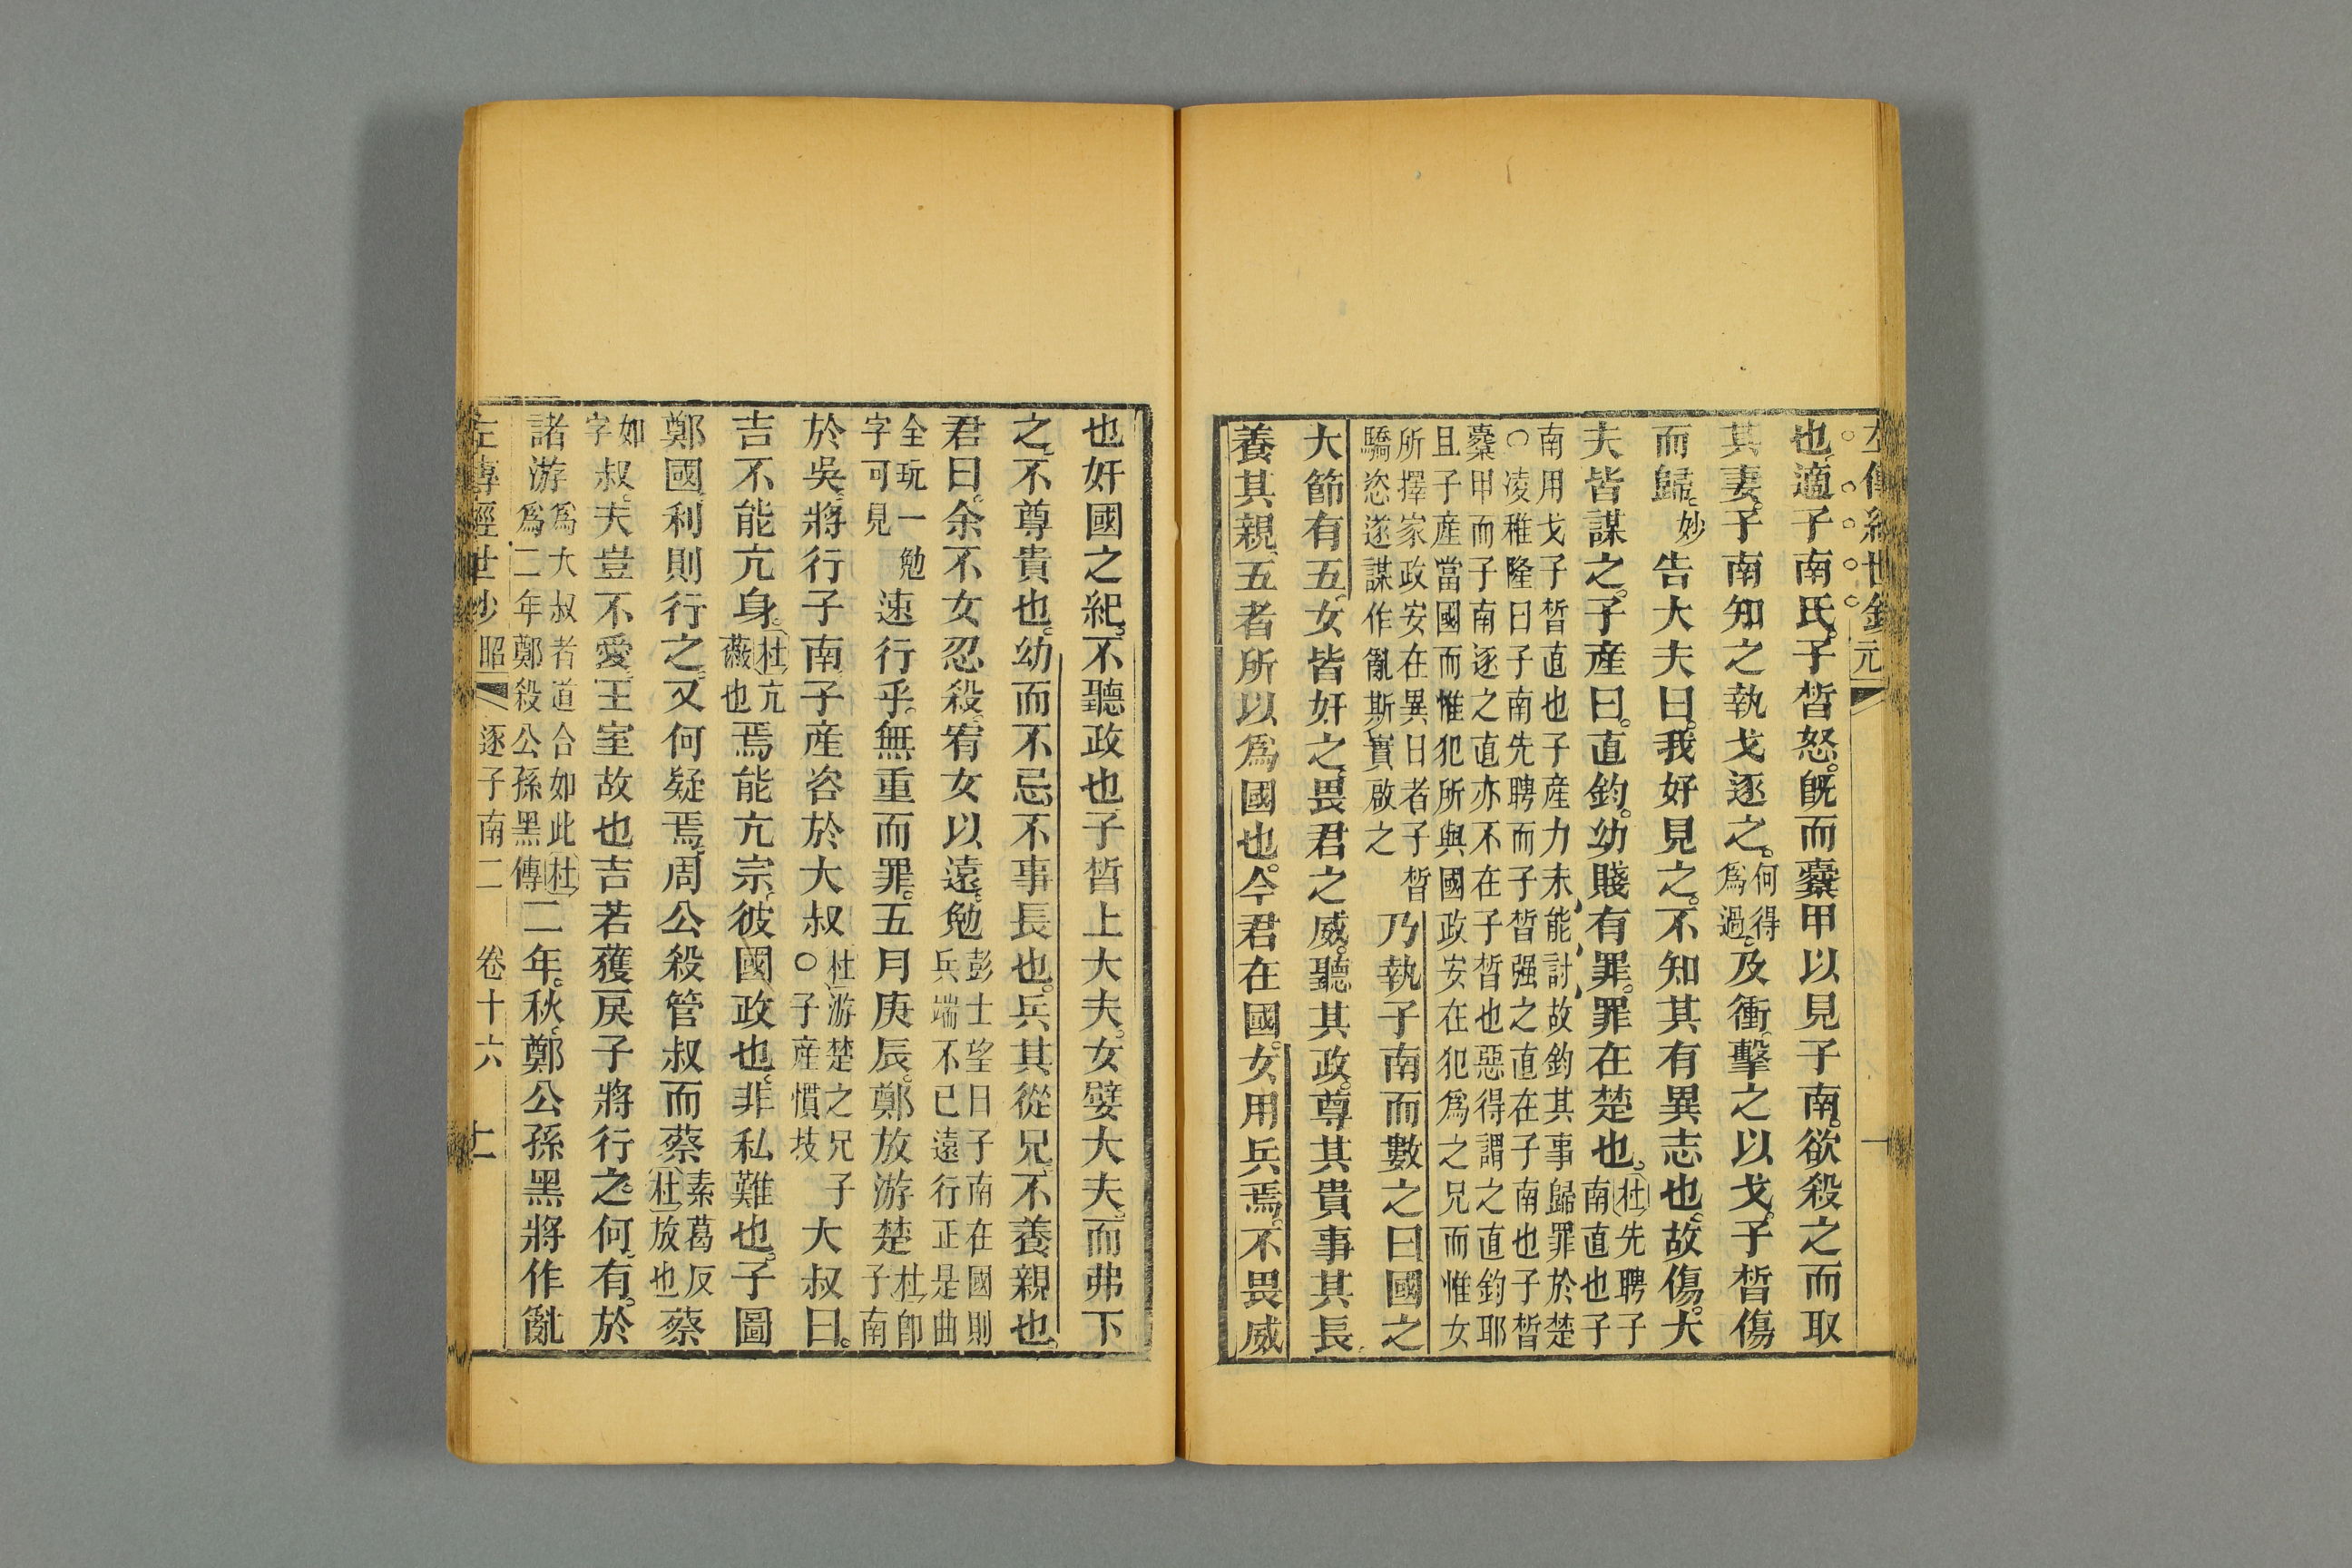 左傳經世鈔 元 一
也適子南氏子晳怒既而櫜甲以見子南欲殺之而取
其妻子南知之執戈逐之何得為過及衝擊之以戈子晳傷
而歸妙告大夫曰我好見之不知其有異志也故傷大
夫皆謀之子產曰直鈞幼賤有罪罪在楚也杜先聘子南直也子
南用戈子晳直也子產力未能討故鈞其事歸罪於楚
○凌稚隆曰子南先聘而子晳强之直在子南也子晳
櫜甲而子南逐之直亦不在子晳也惡得謂之直鈞耶
且子產當國而惟犯所與國政安在犯為之兄而惟女
所擇家政安在異日者子晳
驕恣遂謀作亂斯實啟之
乃執子南而數之曰國之
大節有五女皆奸之畏君之威聽其政尊其貴事其長
養其親五者所以爲國也今君在國女用兵焉不畏威
也奸國之紀不聽政也子晳上大夫女嬖大夫而弗下
之不尊貴也幼而不忌不事長也兵其從兄不養親也
君曰余不女忍殺宥女以遠勉彭士望曰子南在國則兵端不已遠行正是曲
全玩一勉字可見速行乎無重而罪五月庚辰鄭放游楚杜卽子南
於吳將行子南子產咨於大叔杜游楚之兄子○子產慣技大叔曰
吉不能亢身杜亢蔽也焉能亢宗彼國政也非私難也子圖
鄭國利則行之又何疑焉周公殺管叔而蔡素葛反杜放也蔡
如字叔夫豈不愛王室故也吉若獲戾子將行之何有於
諸游為大叔者道合如此杜為二年鄭殺公孫黑傳二年秋鄭公孫黑將作亂
左傳經世鈔 昭 逐子南二 卷十六